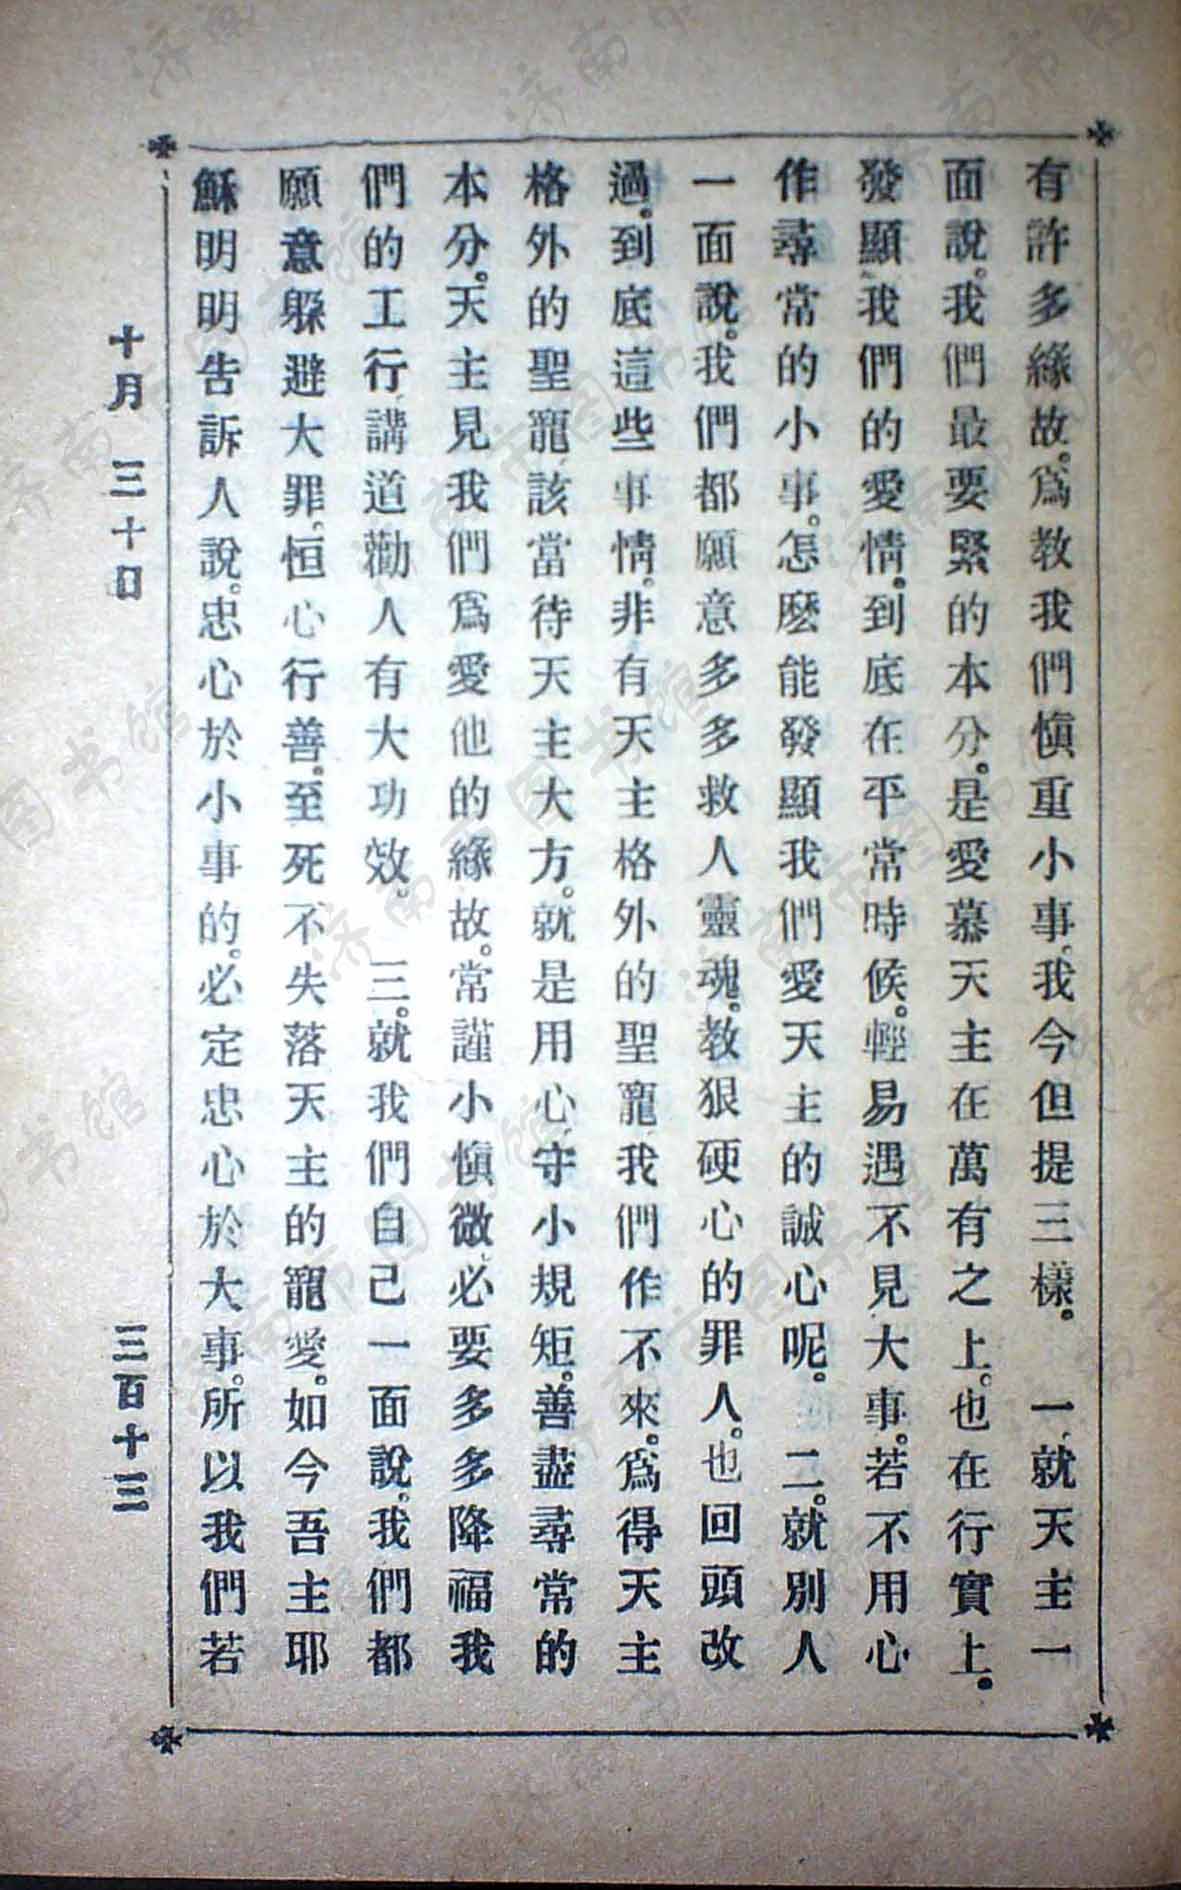 有許多緣故。爲教我們慎重小事。我今但提三樣。　一、就天主一
面說。我們最要緊的本分。是愛慕天主在萬有之上。也在行實上。
發顯我們的愛情。到底在平常時候。輕易遇不見大事。若不用心
作尋常的小事。怎麽能發顯我們愛天主的誠心呢。　二。就別人
一面說。我們都願意多多救人靈魂。教狠硬心的罪人。也回頭改
過。到底這些事情。非有天主格外的聖寵、我們作不來。爲得天主
格外的聖寵、該當待天主大方。就是用心、守小規矩。善盡尋常的
本分。天主見我們爲愛他的緣故。常謹小慎微、必要多多降福我
們的工行、講道勸人有大功效。　三。就我們自己一面說。我們都
願意躲避大罪。恒心行善。至死不失落天主的寵愛。如今吾主耶
穌明明告訴人說。忠心於小事的。必定忠心於大事。所以我們若
十月 三十日
三百十三
济南市图书馆